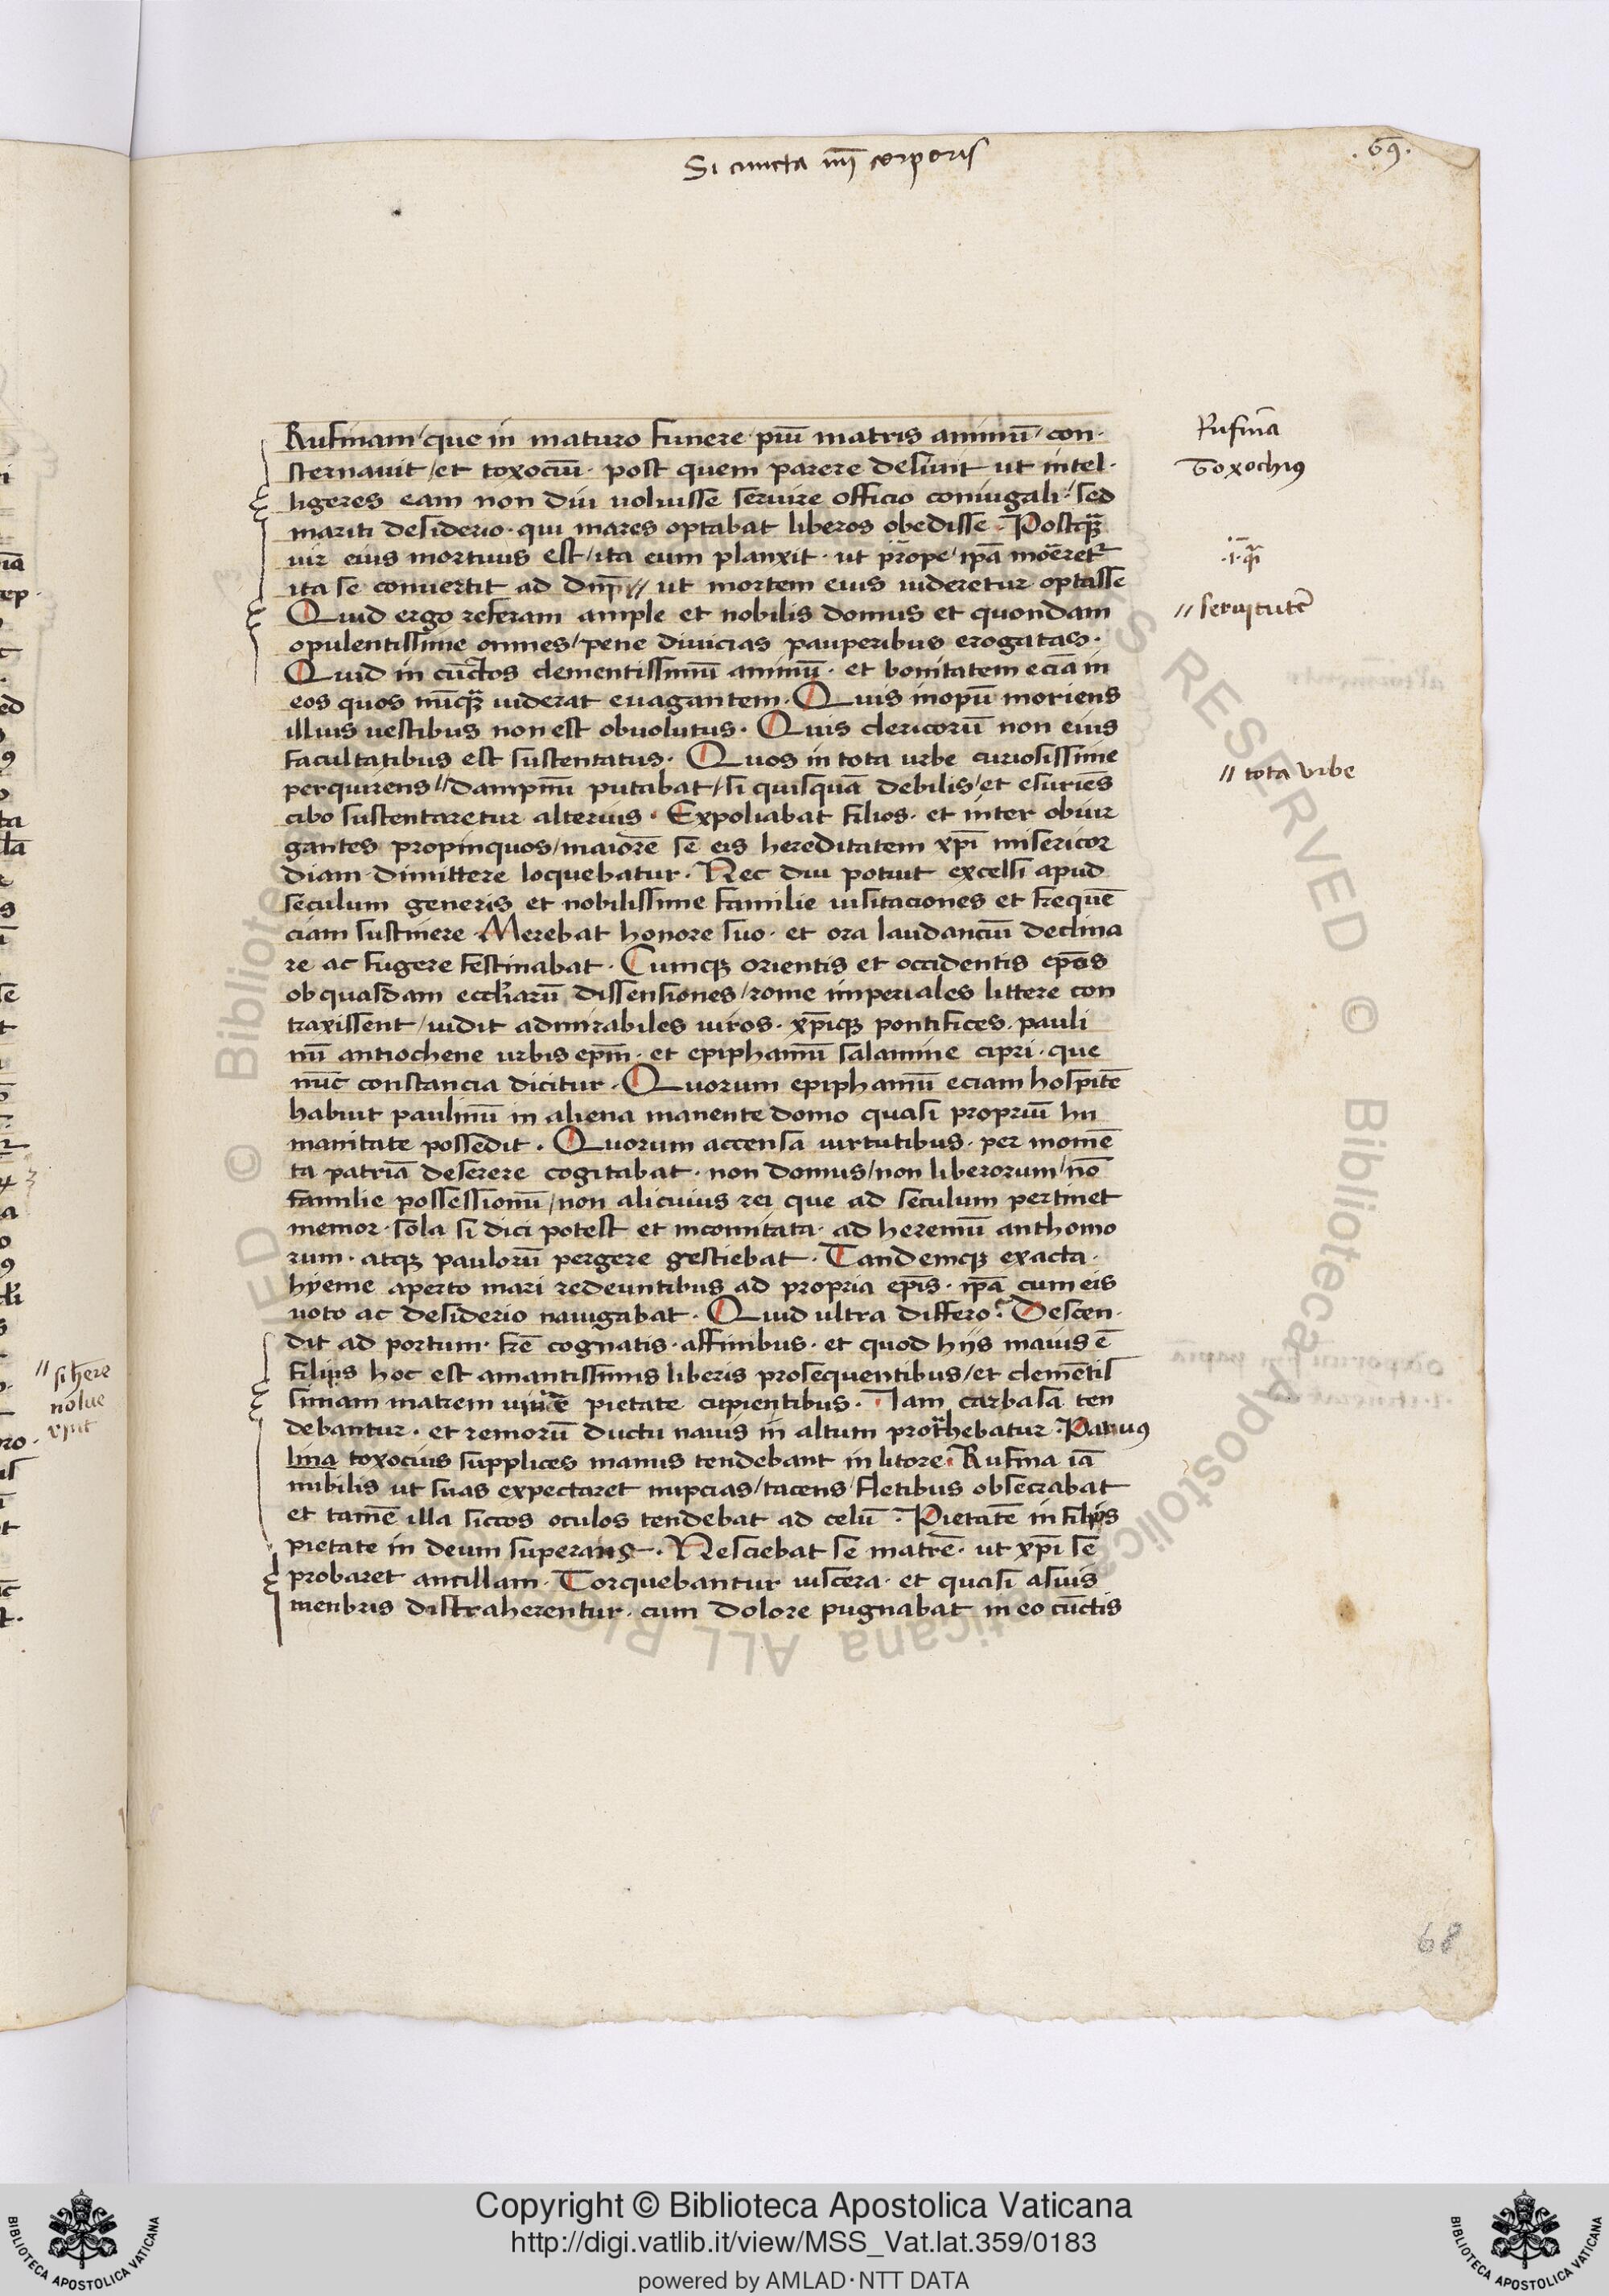 Si cuncta mei corporis
.69.
Rufinam / que in maturo funere piū matris animū / con-
sternavit / et toxociū · post quem parere desiuit ut intel-
ligeres eam non diu uoluisse seruire officio coniugali / sed
mariti desiderio · qui mares optabat liberos obedisse · Postqꝫ
uir eius mortuus est / ita eum planxit · ut prope ip̄a moreret᷑
ita se conuertit ad dn̄i // ut mortem eius uideretur optasse
Quid ergo referam ample et nobilis domus et quondam
opulentissime omnes / pene diuicias pauperibus erogatas ·
Quid in cūctos clementissimū animū · et bonitatem eciā in
eos quos nūqꝫ uiderat euagantem · Quis inopū moriens
illius uestibus non est obuolutus · Quis clericorū non eius
facultatibus est sustentatus · Quos in tota urbe curiosissime
perquirens // dampnū putabat / si quisquā debilis / et esuriēs
cibo sustentaretur alterius · Expoliabat filios · et inter obiur
gantes propinquos / maiorē se eis hereditatem xp̄i misericor
diam dimittere loquebatur · Nec diu potuit excelsi apud
seculum generis et nobilissime familie uisitaciones et frequē
ciam sustinere · Merebat honore suo · et ora laudanciū declina
re ac fugere festinabat · Cumqꝫ orientis et occidentis ep̄os
ob quasdam eccl̄iarū dissensiones / rome imperiales littere con
traxissent / uidit admirabiles uiros · xp̄iqꝫ pontifices · pauli
nū antiochene urbis ep̄m · et epiphaniū salamine cipri · que
nūc constancia dicitur · Quorum epiphaniū eciam hospitē
habuit paulinū in aliena manente domo quasi propriū hu
manitate possedit · Quorum accensa uirtutibus · per momē
ta patriā deserere cogitabat · non domus / non liberorum / nō
familie possessionū / non alicuius rei que ad seculum pertinet
memor · sola si dici potest et incomitata · ad heremū anthonio
rum · atqꝫ paulorū pergere gestiebat · Tandemqꝫ exacta ·
hyeme aperto mari redeuntibus ad propria ep̄is · ip̄a cum eis
uoto ac desiderio nauigabat · Quid ultra differo · Descen-
dit ad portum · fr̄e cognatis · affinibus · et quod hijs maius ē
filijs hoc est amantissimis liberis prosequentibus / et clemētis
simam matrem pietate cupientibus · Iam carbasa ten
debantur · et remorū ductu nauis in altum protrahebatur · Paruus
lina toxocius supplices manus tendebant in litore · Rufina iā
nubilis ut suas expectaret nupcias / tacens / fletibus obsecrabat
et tamē illa siccos oculos tendebat ad celū · Pietatē in filijs
pietate in deum superans · Nesciebat se matrē · ut xp̄i se
probaret ancillam · Torquebantur uiscera · et quasi a suis
menbris distraherentur · cum dolore pugnabat in eo cūctis
Rufinā
Toxochius
// seruitutē
// tota vrbe
// si here
nolue
68
Copyright © Biblioteca Apostolica Vaticana
http://digi.vatlib.it/view/MSS_Vat.lat.359/0183
powered by AMLAD·NTT DATA
BIBLIOTECA APOSTOLICA VATICANA
BIBLIOTECA APOSTOLICA VATICANA